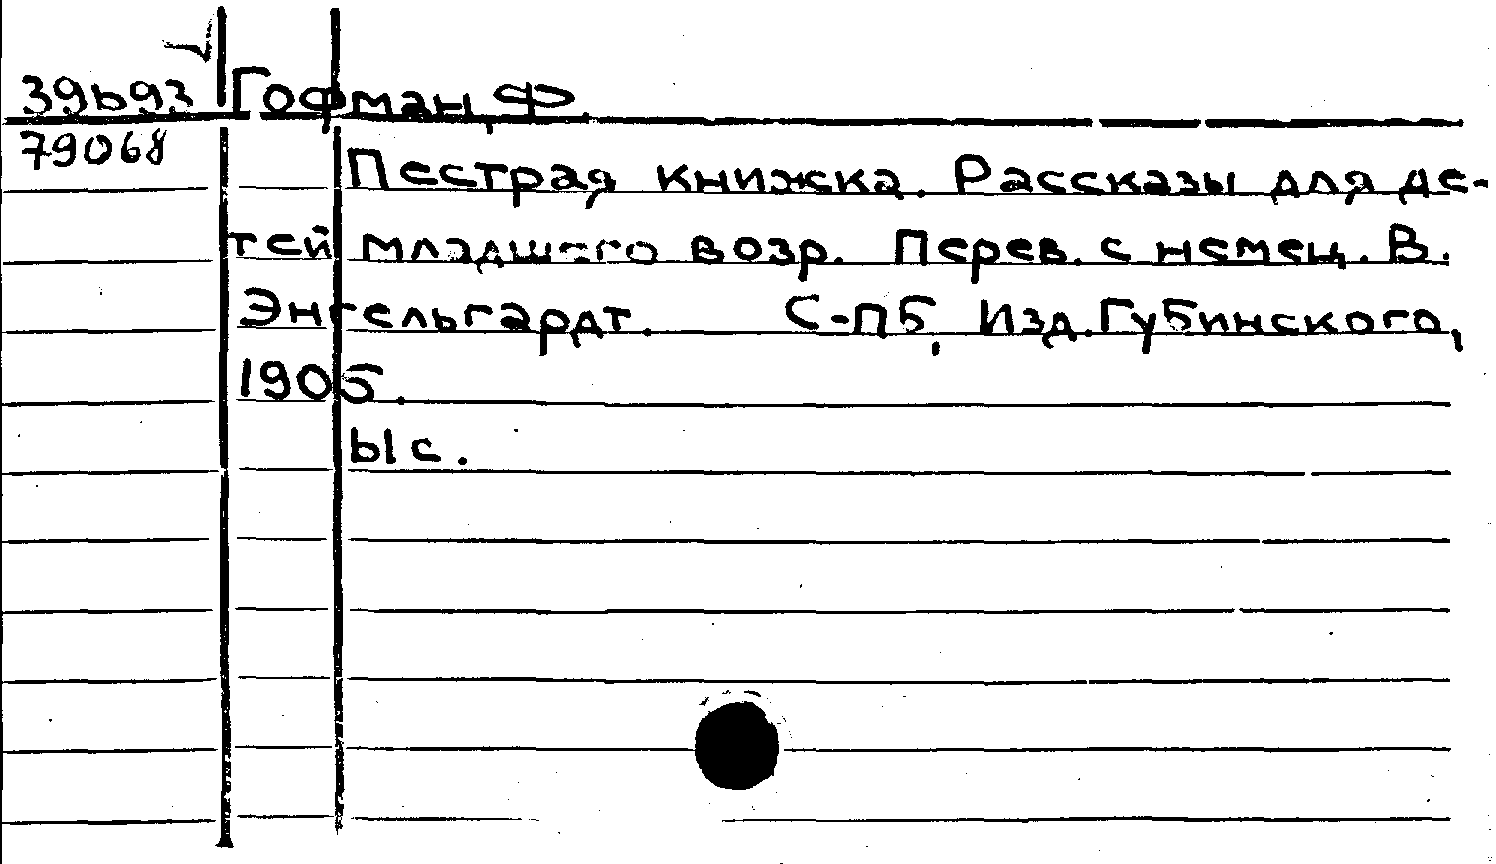 39ь93 Гофман, Ф.
79068
Пестрая книжка. Рассказы для де-
тей младшего возр. Перев. с немец. В.
Энгельгардт. С-ПБ, Изд. Губинского,
1905.
ыс.